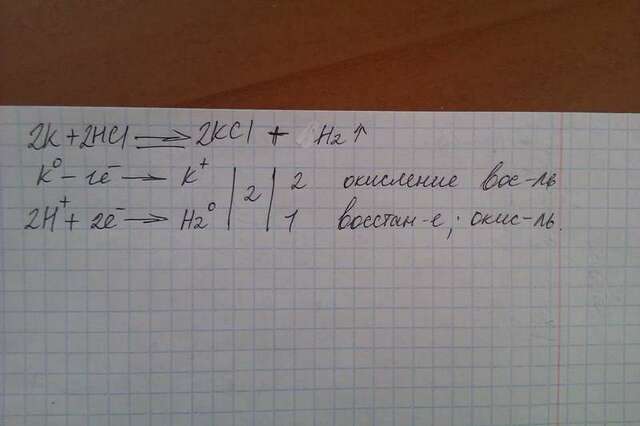 2K + 2HCl ⟶ 2KCl + H₂↑
K⁰ - 1e⁻ ⟶ K⁺ | 2 | 2 окисление вос-ль
2H⁺ + 2e⁻ ⟶ H₂⁰ | | 1 восстан-е; окис-ль.